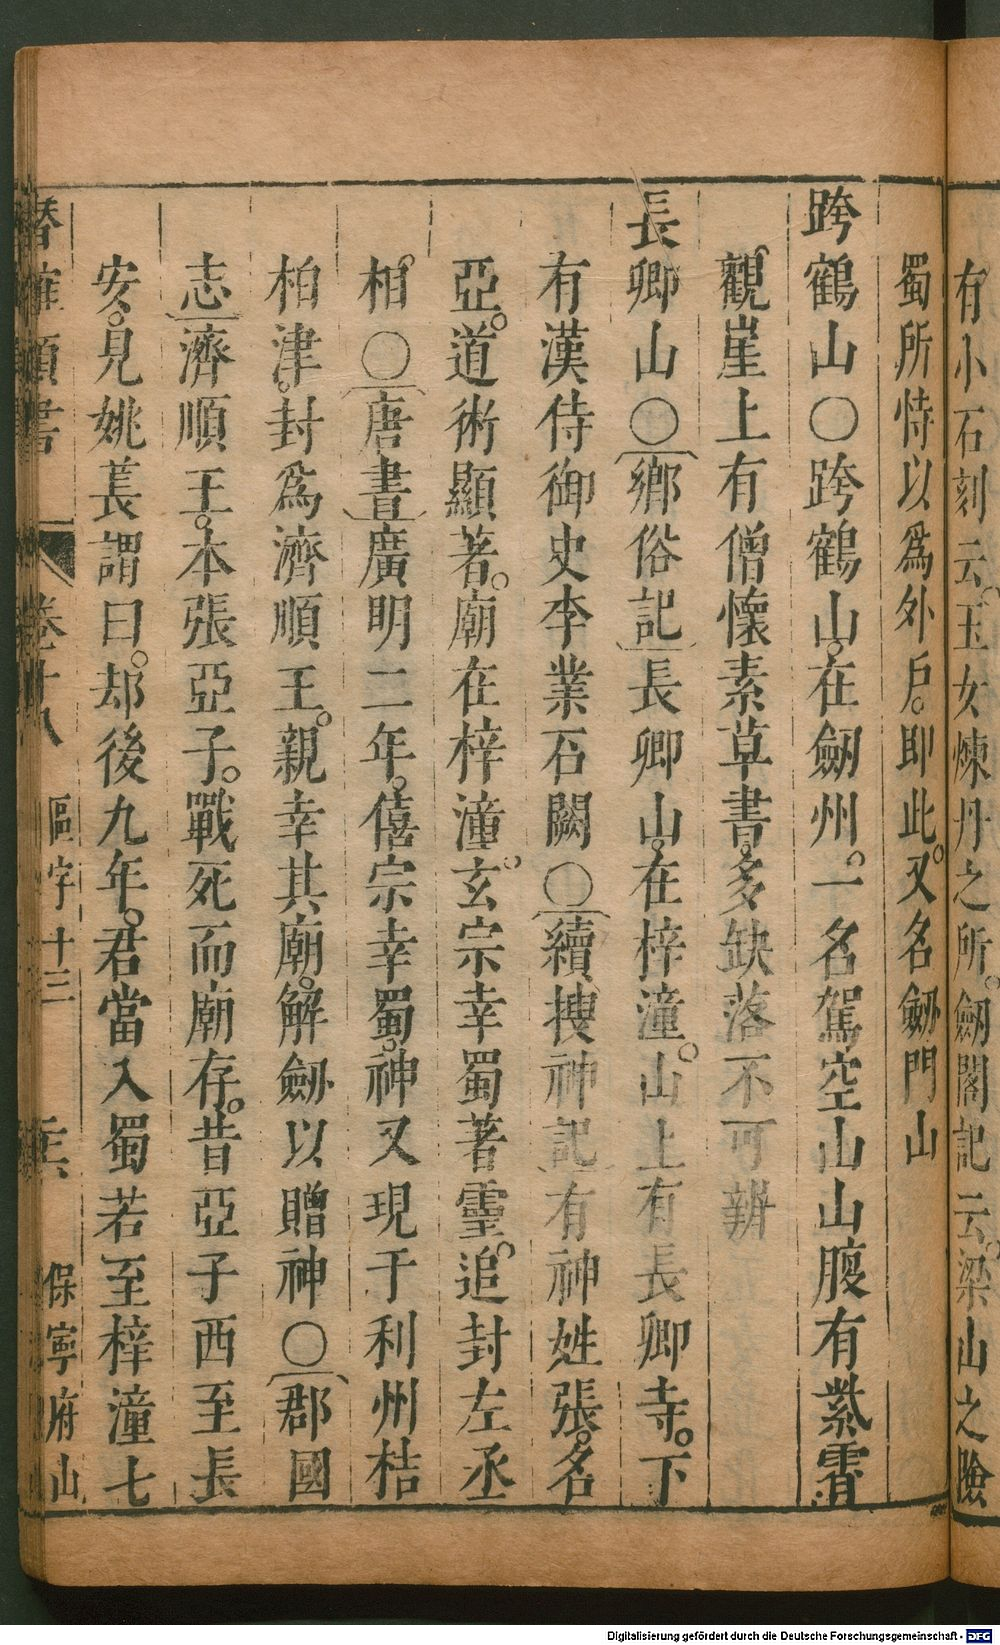 有小石刻云。玉女煉丹之所。劔閣記云。梁山之險
蜀所恃以爲外戶。即此。又名劔門山
跨鶴山〇跨鶴山。在劔州。一名駕空山山腹有紫霄
觀。崖上有僧懷素草書。多缺落不可辨
長卿山〇鄉俗記長卿山。在梓潼。山上有長卿寺。下
有漢侍御史李業石闕〇續搜神記有神姓張。名
亞。道術顯著。廟在梓潼。玄宗幸蜀著靈。追封左丞
相。〇唐書廣明二年。僖宗幸蜀。神又現于利州桔
柏津。封爲濟順王。親幸其廟。解劔以贈神〇郡國
志濟順王。本張亞子。戰死而廟存。昔亞子西至長
安。見姚萇謂曰。却後九年。君當入蜀若至梓潼七
潛確類書 卷十八 區宇十三 保寧府山
Digitalisierung gefördert durch die Deutsche Forschungsgemeinschaft - DFG